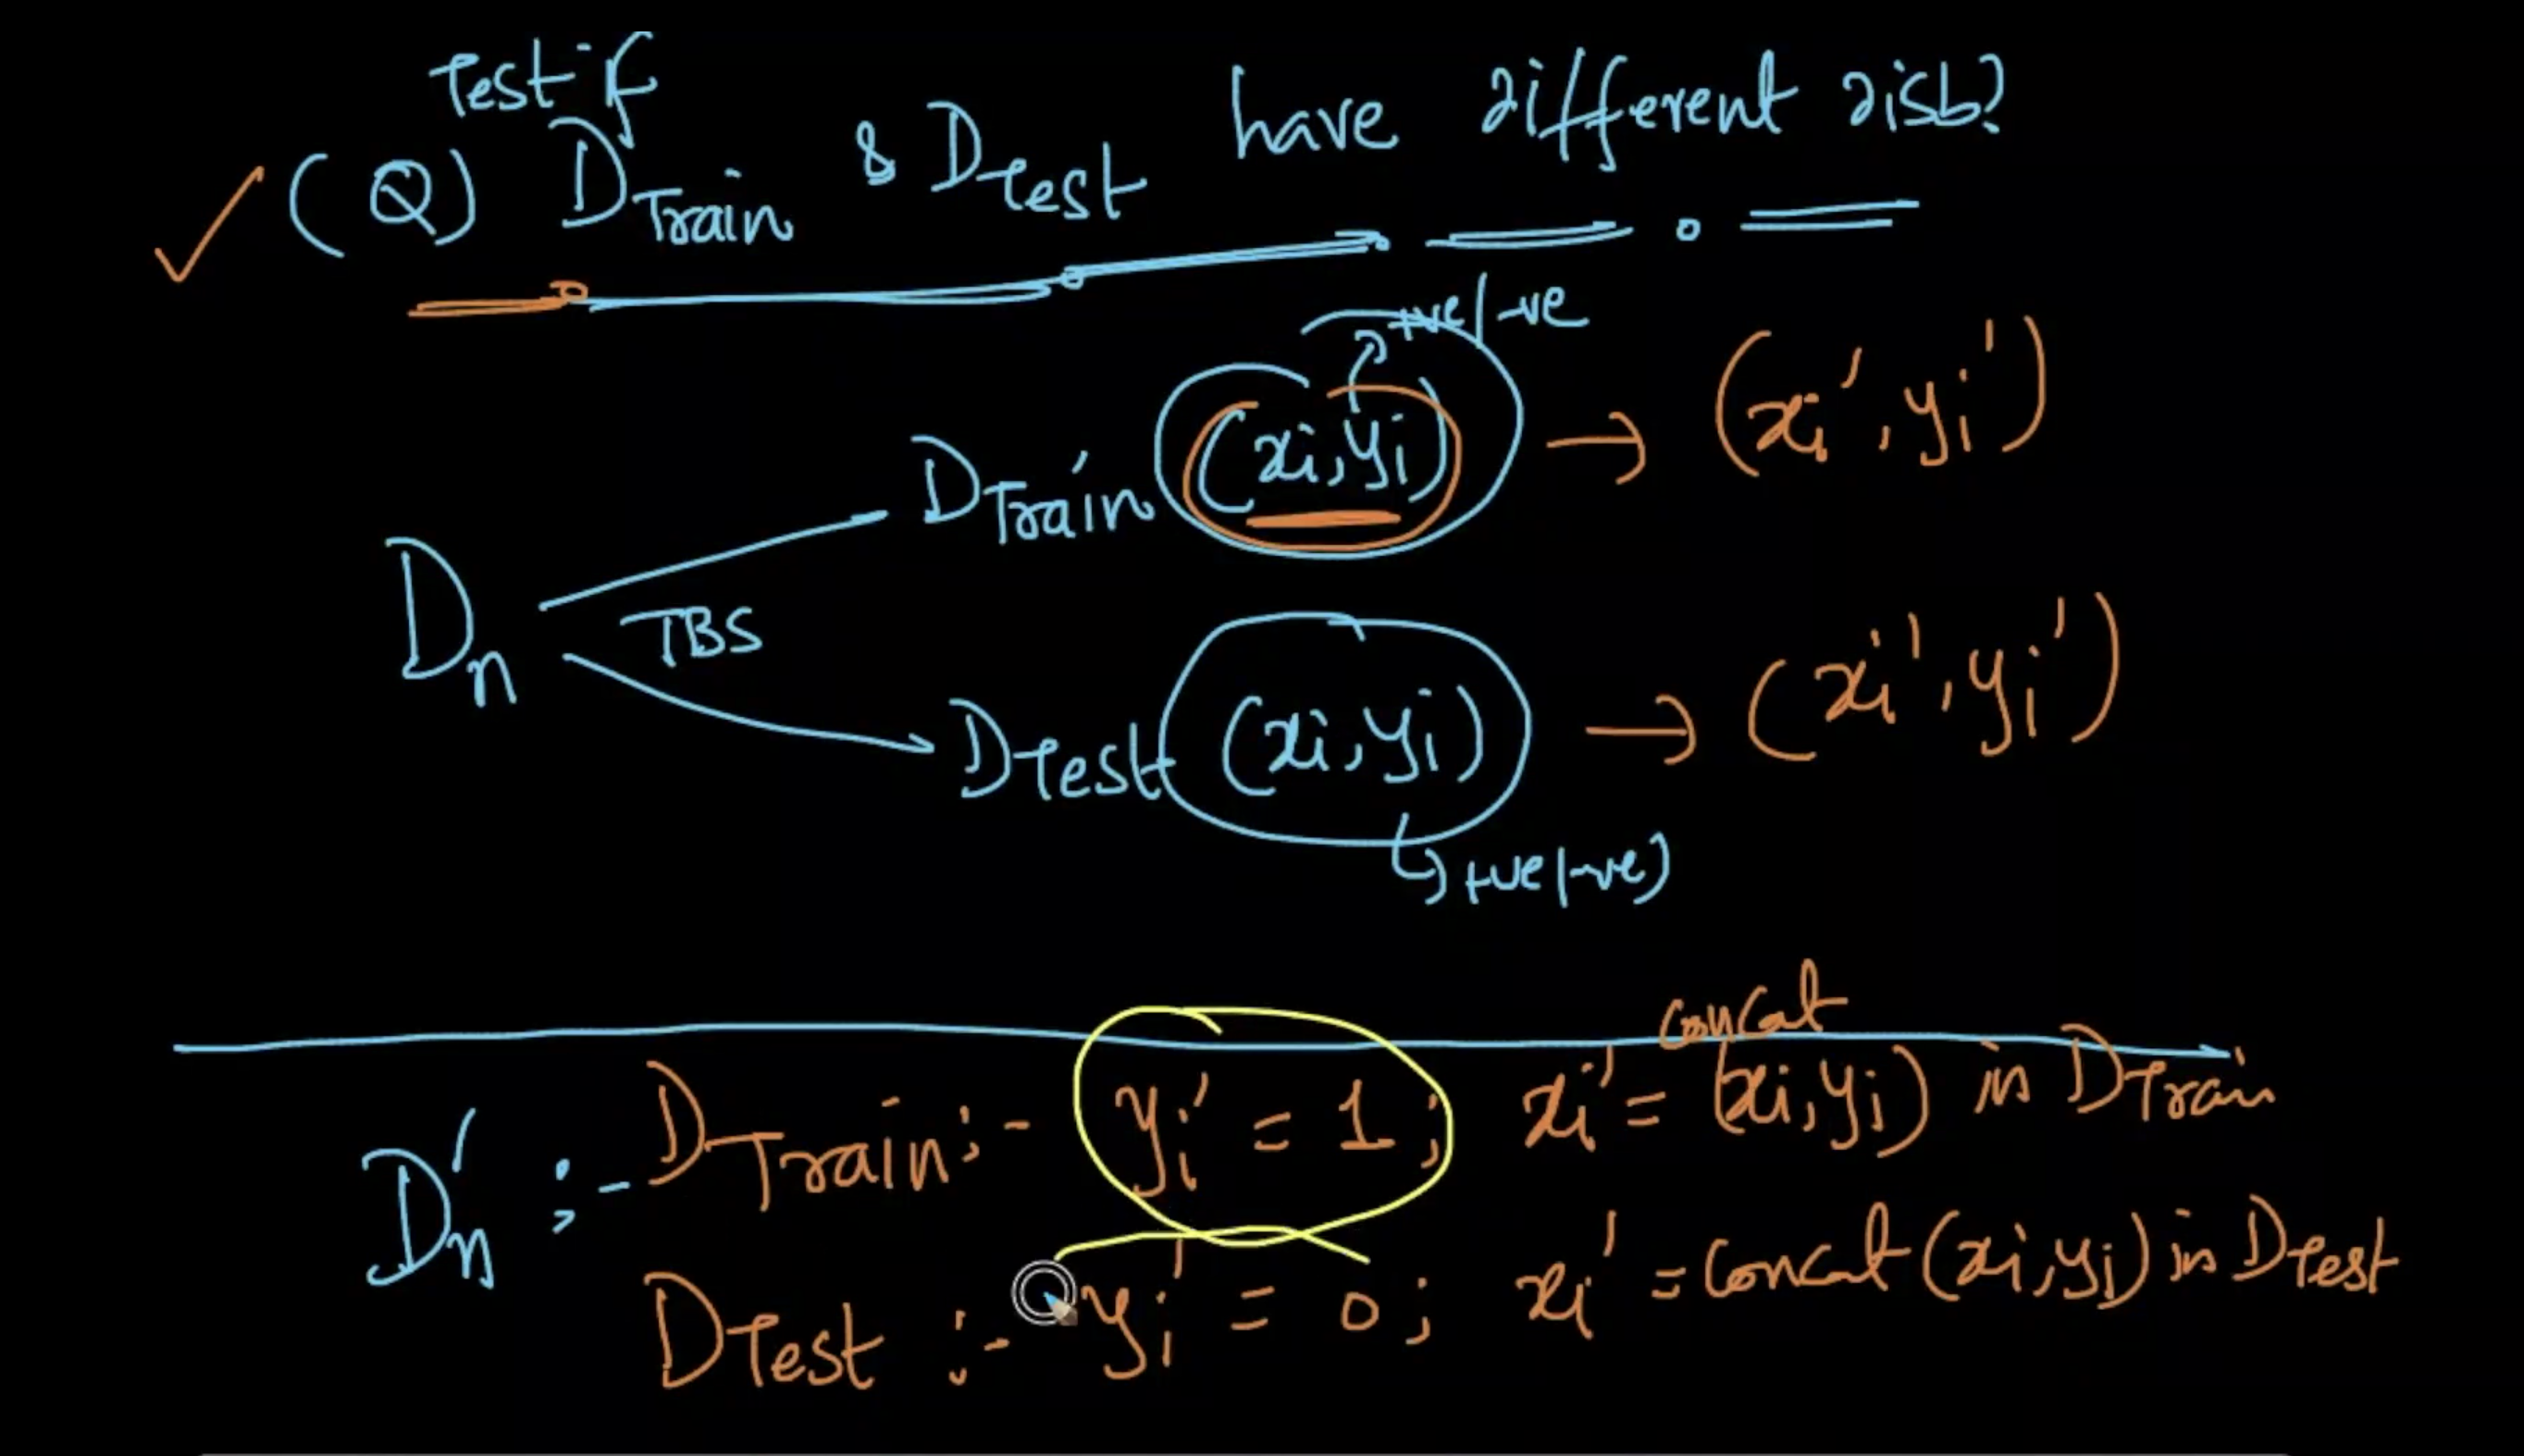 Test if
(Q) DTrain & DTest have different disb?
+ve/-ve
DTrain (xi,yi) → (xi',yi')
Dn
TBS
DTest (xi,yi) → (xi',yi')
+ve|-ve)
concat
Dn' :- DTrain :- yi' = 1; xi' = (xi,yi) in DTrain
DTest :- yi' = 0; xi' = concat(xi,yi) in DTest